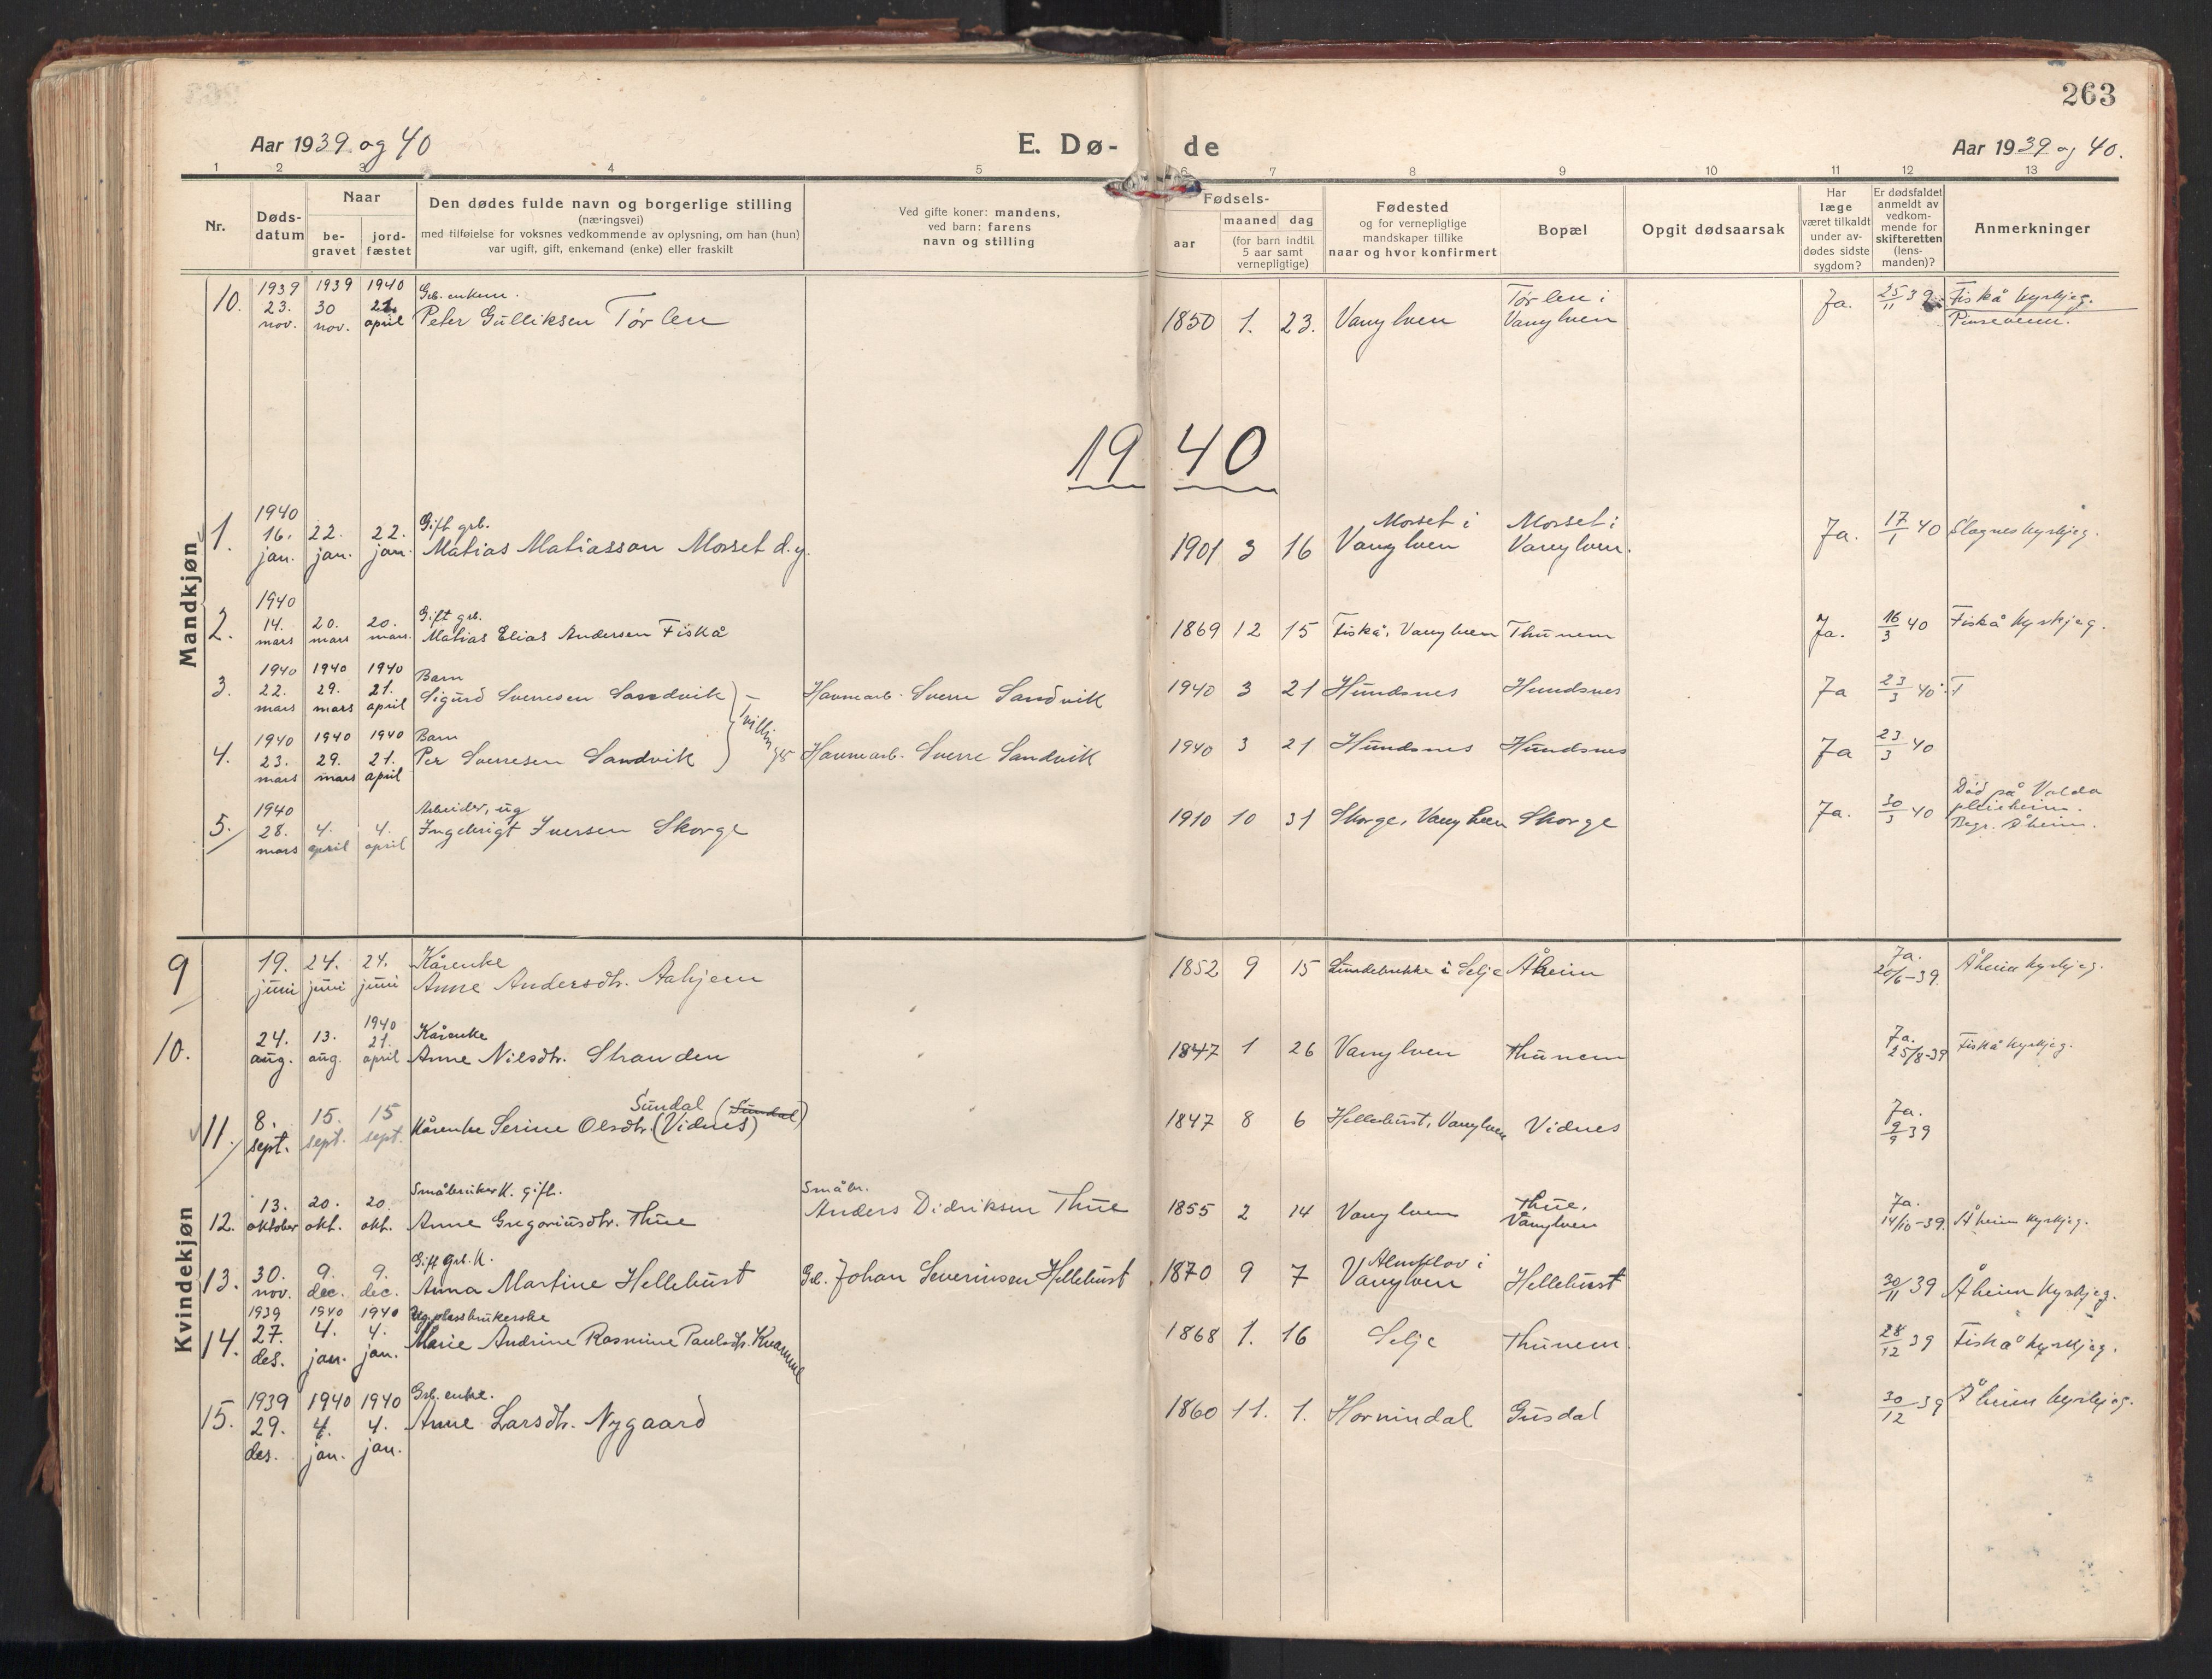 263
Aar 1939 og 40
E. Dø-
de
Aar 1939 og 40.
1 2 3 4 5 6 7 8 9 10 11 12 13
Nr.
Døds-
datum
Naar
be-
gravet
jord-
fæstet
Den dødes fulde navn og borgerlige stilling
(næringsvei)
med tilføielse for voksnes vedkommende av oplysning, om han (hun)
var ugift, gift, enkemand (enke) eller fraskilt
Ved gifte koner: mandens,
ved barn: farens
navn og stilling
Fødsels-
aar
maaned dag
(for barn indtil
5 aar samt
vernepligtige)
Fødested
og for vernepligtige
mandskaper tillike
naar og hvor konfirmert
Bopæl
Opgit dødsaarsak
Har
læge
været tilkaldt
under av-
dødes sidste
sygdom?
Er dødsfaldet
anmeldt av
vedkom-
mende for
skifteretten
(lens-
manden)?
Anmerkninger
Mandkjøn
1939 1939 1940 Grb. enkem. Tørlen i Fiskå kyrkjeg.
10. 23. nov. 30 nov. 21. april Peter Gulliksen Tørlen 1850 1. 23. Vanylven Vanylven Ja. 25/11 39. Pinseven.
1940
1940 Gift grb. Morset i Morset i
1. 16. jan. 22. jan. 22. jan. Matias Matiasson Morset d.y. 1901 3 16 Vanylven Vanylven. Ja. 17/1 40 Slagnes kyrkjeg.
1940 Gift grb.
2. 14. mars 20. mars 20. mars. Matias Elias Andersen Fiskå 1869 12 15 Fiskå, Vanylven Thunem Ja. 16/3 40 Fiskå kyrkjeg.
1940 1940 1940 Barn
3. 22. mars 29. mars 21. april Sigurd Sverresen Sandvik – Havnearb. Sverre Sandvik 1940 3 21 Hundsnes Hundsnes Ja 23/3 40
Tvillingar
1940 1940 1940 Barn
4. 23. mars 29. mars 21. april Per Sverresen Sandvik Havnearb. Sverre Sandvik 1940 3 21 Hundsnes Hundsnes Ja 23/3 40
1940 Arbeider, ug Død på Volda
5. 28. mars 4. april 4. april Ingebrigt Iversen Skorge 1910 10 31 Skorge, Vanylven Skorge Ja. 30/3 40 pleieheim.
Begr. Åheim.
Kvindekjøn
9 19. juni 24. juni 24. juni Kårenke
Anne Andersdtr. Aahjem 1852 9 15 Lundebrekke i Selje Åheim Ja. 20/6-39. Åheim kyrkjeg.
1940
10. 24. aug. 13. aug. 21. april Kårenke
Anne Nilsdtr. Stranden 1847 1 26 Vanylven Thunem Ja. 25/8-39 Fiskå kyrkjeg.
Sundal (Sundal)
11. 8. sept. 15. sept. 15 sept. Kårenke Serine Olsdtr. (Vidnes) 1847 8 6 Hellebust, Vanylven Vidnes Ja. 9/9 39
Småbruker K. gift. Småbr.
12. 13. oktober 20. okt. 20. okt. Anne Gregoriusdtr. Thue Anders Didriksen Thue 1855 2 14 Vanylven Thue, Vanylven Ja. 14/10-39. Åheim kyrkjeg.
Gift Grb. K. Almklov i
13. 30. nov. 9. dec. 9. dec. Anna Martine Hellebust Gb. Johan Severinsen Hellebust 1870 9 7 Vanylven Hellebust 30/11 39 Åheim kyrkjeg.
1939 1940 1940 Ug. plassbrukerske
14. 27. des. 4. jan. 4. jan. Marie Andrine Rasmine Paulsdtr. Kvamme 1868 1. 16 Selje Thunem. 28/12 39 Fiskå kyrkjeg.
1939 1940 1940 Grb. enke.
15. 29. des. 4. jan. 4. jan. Anne Larsdtr. Nygaard 1860 11. 1. Hornindal Gusdal 30/12 39 Åheim kyrkjeg.